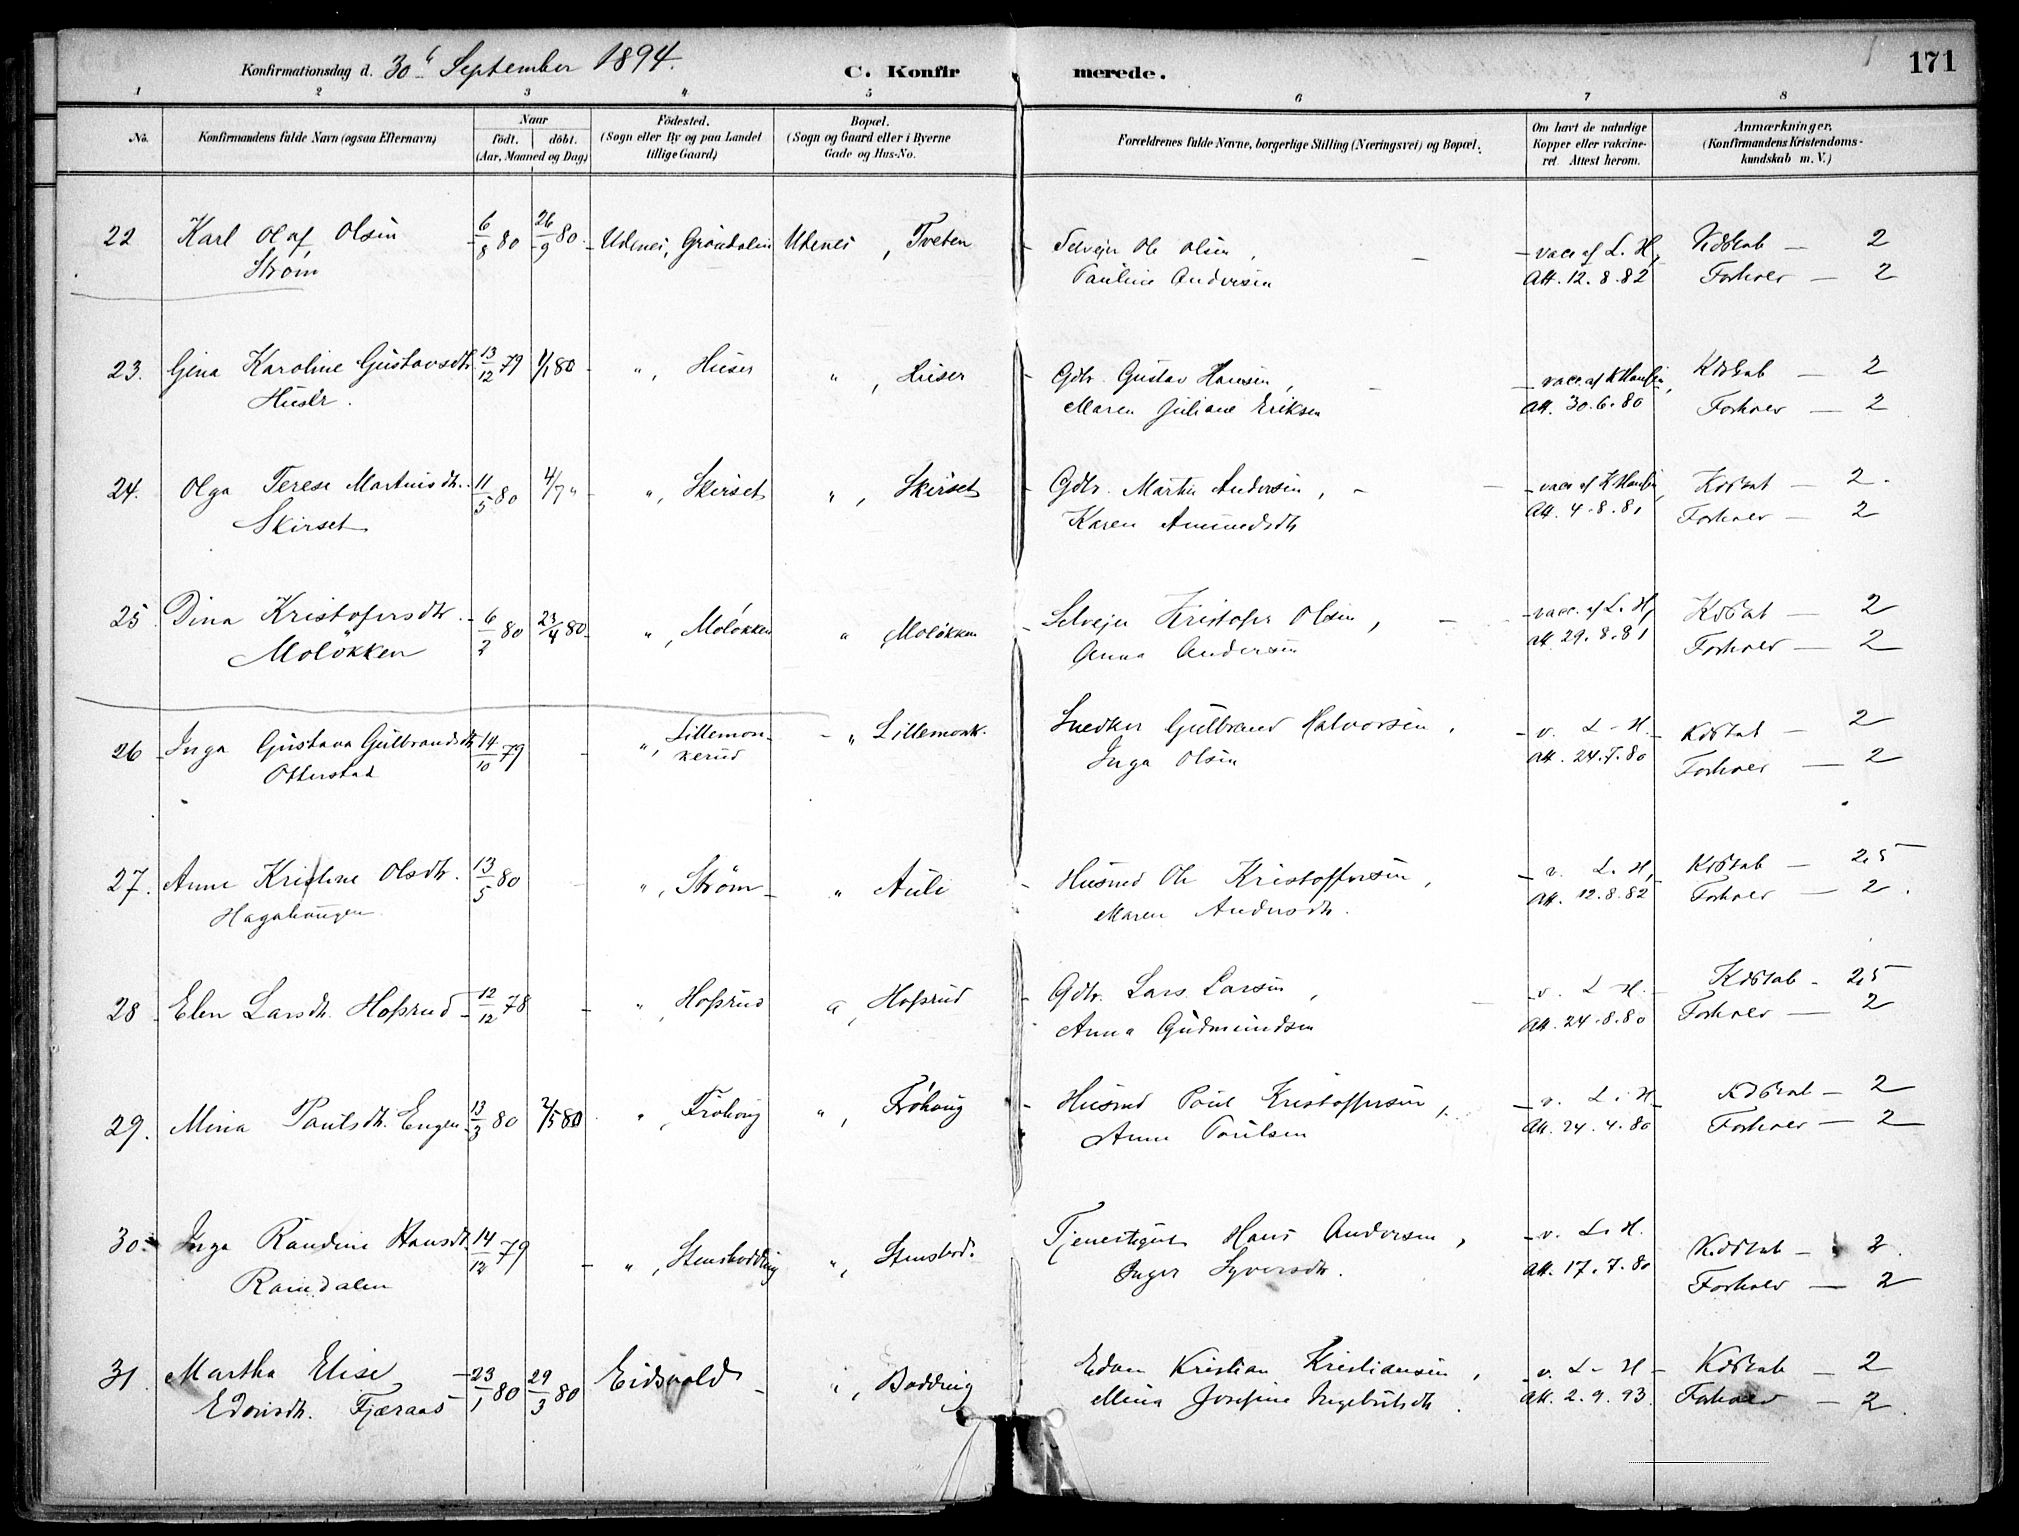 Konfirmationsdag d. 30te September 1894. C. Konfirmerede. 171
1 2 3 4 5 6 7 8
No. Konfirmandens fulde Navn (ogsaa Efternavn) Naar födt. döbt. (Aar, Maaned og Dag) Födested. (Sogn eller By og paa Landet tillige Gaard) Bopæl. (Sogn og Gaard eller i Byerne Gade og Hus-No. Forældrenes fulde Navne, borgerlige Stilling (Næringsvei) og Bopæl. Om havt de naturlige Kopper eller vakcineret Attest herom. Anmærkninger. (Konfirmandens Kristendomskundskab m. V.)
22 Karl Olaf Olsen 6/8 80 26/9 80 Udenes, Grøndalen Udenes, Tveten Selvejer Ole Olsen, vacc af L. H, Kdskab — 2
Strøm Pauline Andersen Att. 12.8.82 Forhold — 2
23. Gina Karoline Gustavsdtr. 13/12 79 1/1 80 " , Huser " , Huser Gdbr. Gustav Hansen, vacc. af K Hansen, Kdskab — 2
Huser. Maren Juliane Eriksen Att. 30.6.80 Forhold — 2
24. Olga Terese Martinsdtr. 11/5 80 4/7 " " , Skirset " , Skirset Gdbr. Martin Andersen, vacc af K Hansen, Kdskab — 2.
Skirset Karen Amundsdtr Att. 4.8.81 Forhold — 2
25 Dina Kristofersdtr. 6/2 80 23/4 80 " , Moløkken " Moløkken Selvejer Kristofer Olsen, vacc. af L. H, Kdskab — 2
Moløkken Anna Andersen att 29.8.81 Forhold — 2
26 Inga Gustava Gulbrandsdtr 14/10 79 " , Lillemonkerud " Lillemonk. Snedker Gulbrand Halvorsen, v. L - H. Kdskab — 2
Otterstad Inga Olsen Att. 24.7.80 Forhold — 2
27. Anne Kristine Olsdtr. 13/5 80 " , Strøm " Auli Husmd Ole Kristoffersen, v. L. H, Kdskab — 2,5
Hagahaugen Maren Andersdtr. Att. 12.8.82 Forhold — 2.
28 Elen Larsdtr. Hofsrud 12/12 78 " , Hofsrud " , Hofsrud Gdbr. Lars Larsen, v. L - H. Kdskab - 2,5
Anna Gudmundsen Att. 24.8.80 Forhold — 2
29. Mina Paulsdtr. Engen 13/3 80 2/5 80 " , Frøhaug " , Frøhaug Husmd Paul Kristoffersen, v. L. H Kdskab — 2
Anne Paulsen Att. 24.4.80 Forhold — 2
30. Inga Randine Hansdtr. 14/12 79 " , Stensbodding " , Stensbod. Tjenestegut Hans Andersen, v. L. H. Kdskab — 2.
Ramdalen Inger Syversdtr. Att. 17.7.80 Forhold — 2
31. Martha Elise 23/1 80 29/3 80 Eidsvold " , Bodding Edon Kristian Kristiansen, v. L - H Kdskab — 2
Edonsdtr. Fjæraas Mina Josefine Ingebretsdtr. Att. 2.9.93. Forhold — 2.